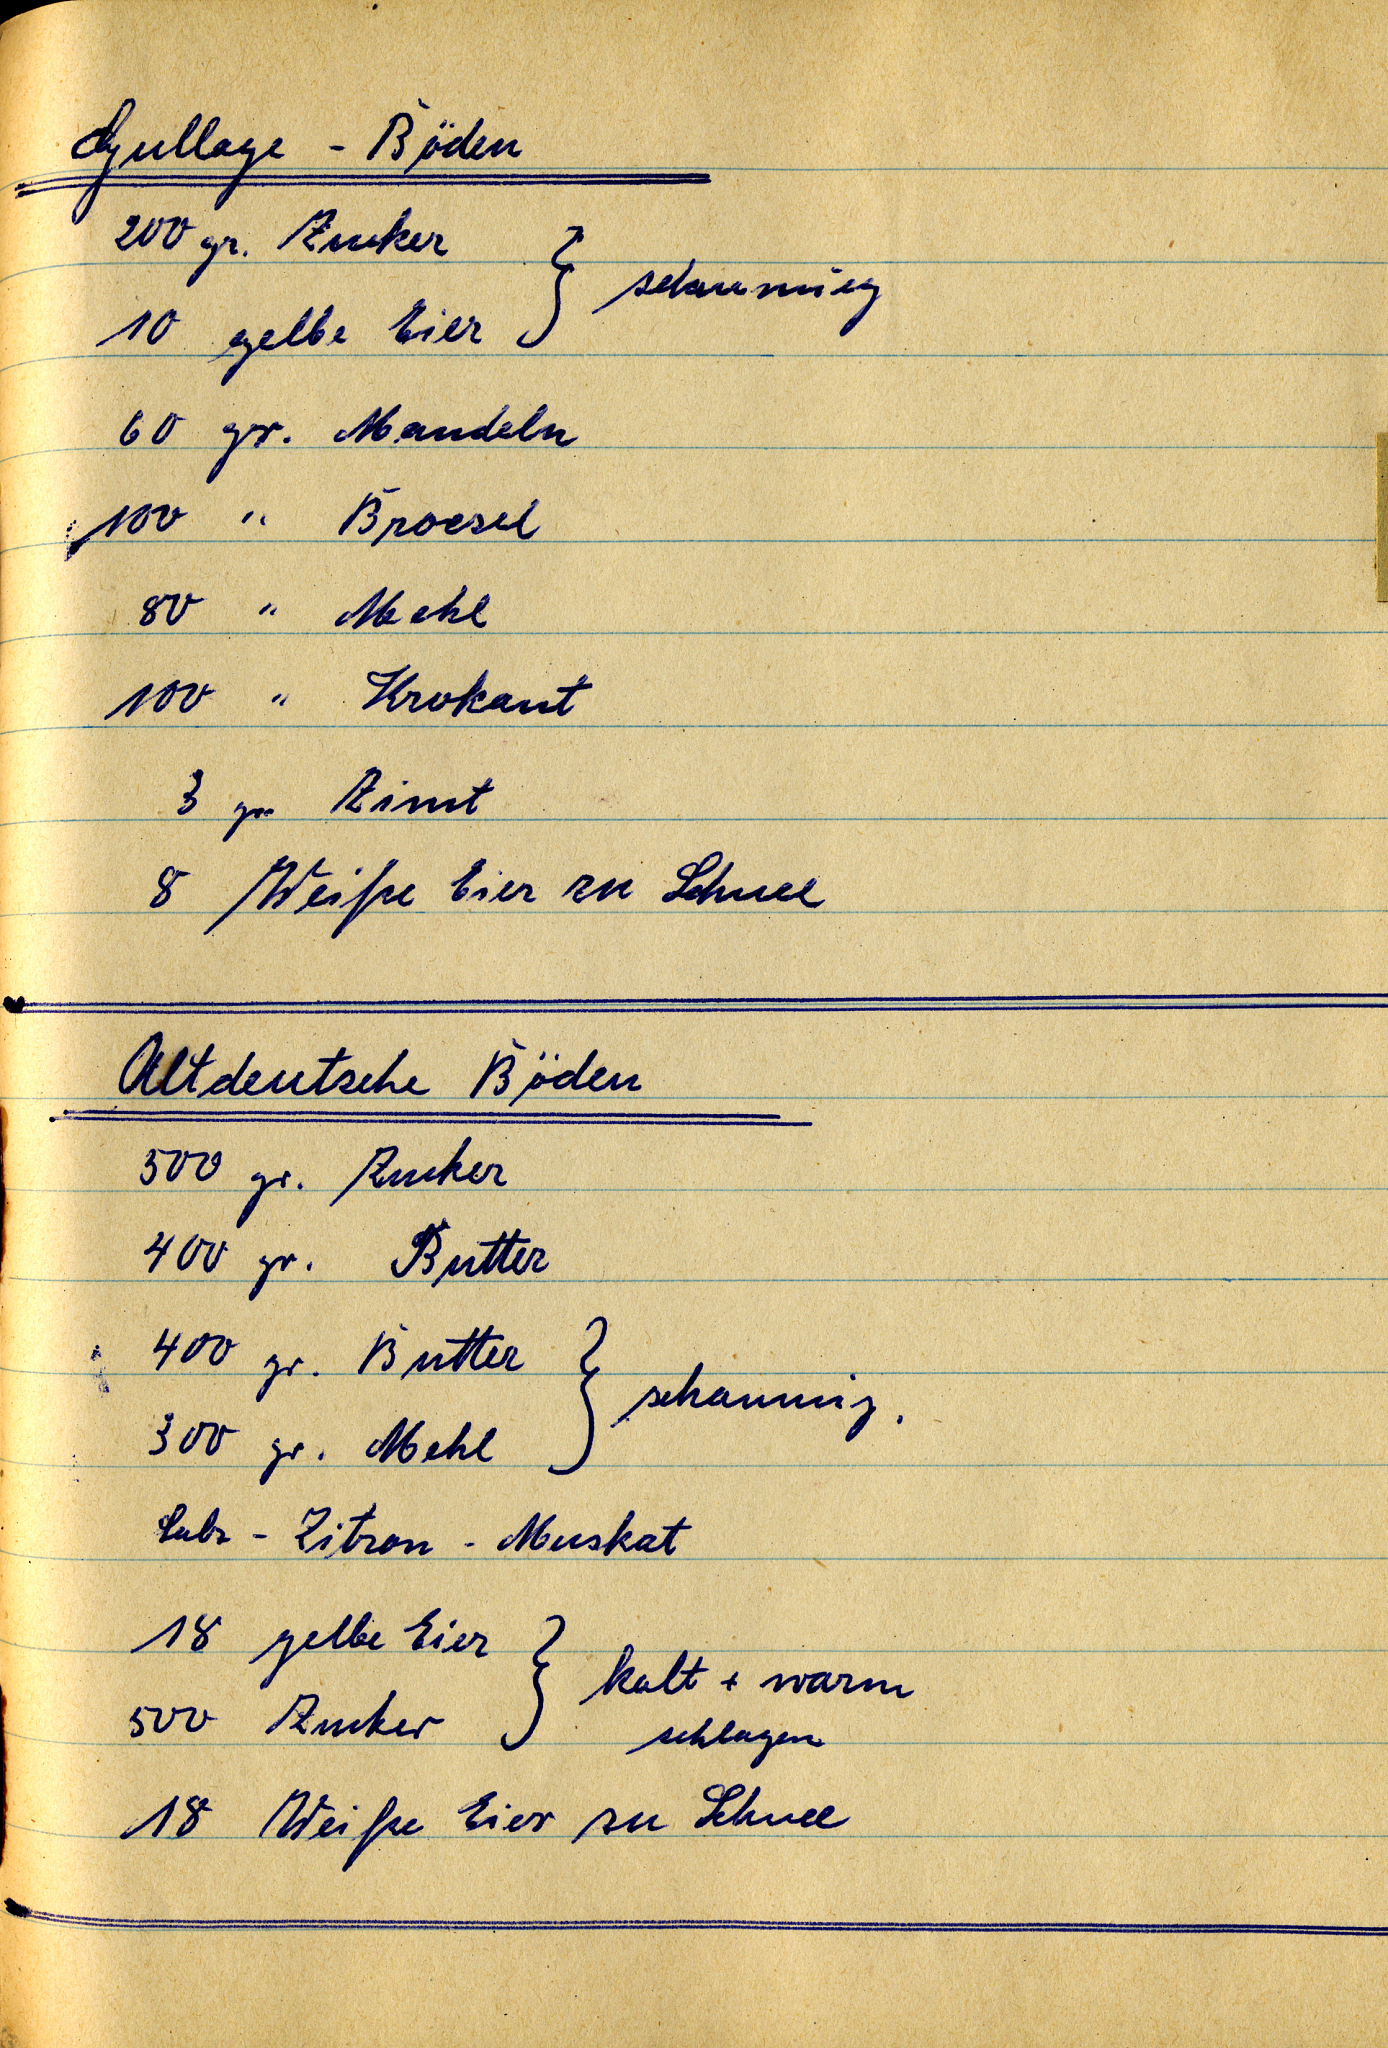 - Böden
200 gr. Zucker
10 gelbe Eier } schaumig
60 gr. Mandeln
100 " Broesel
80 " Mehl
100 " Krokant
3 gr Zimt
8 Weiße Eier zu Schnee
Altdeutsche Böden
500 gr. Zucker
400 gr. Butter
400 gr. Butter
300 gr. Mehl } schaumig.
Salz - Zitron - Muskat
18 gelbe Eier
500 Zucker } kalt + warm
schlagen
18 Weiße Eier zu Schnee